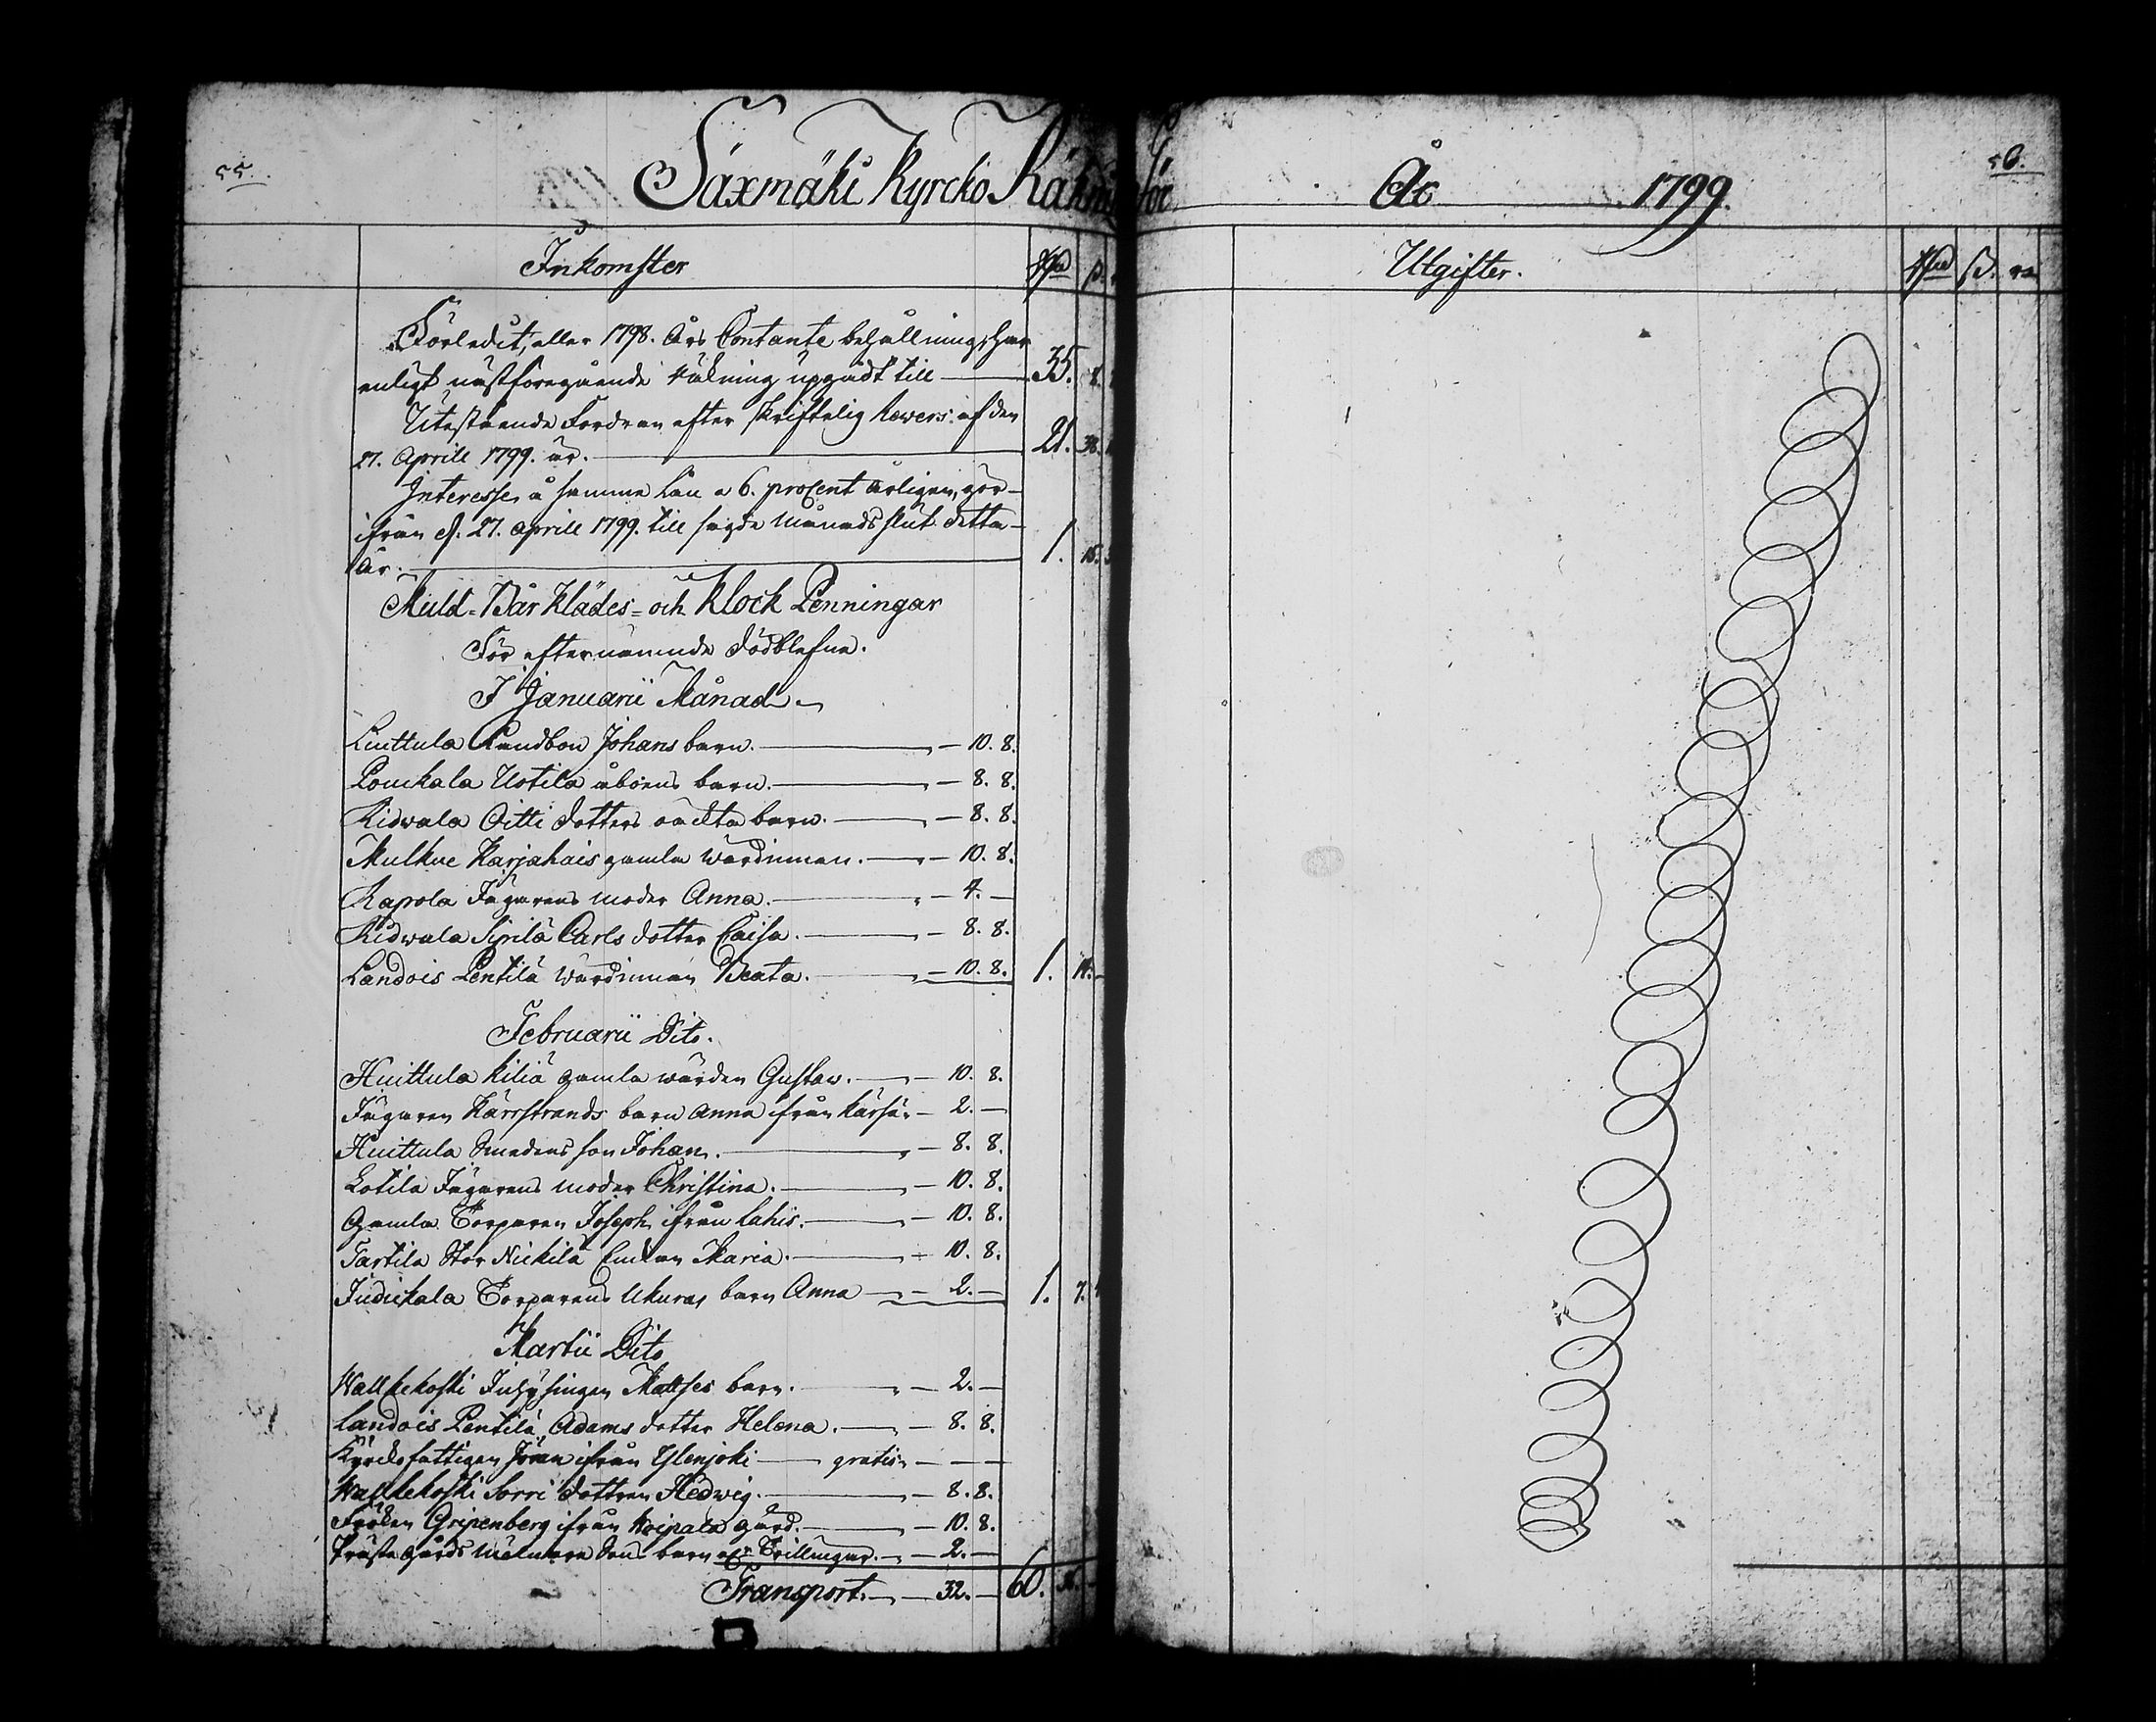 55.
Säxmäki Kyrcko Räkn för År 1799.
56.
Inkomster
Utgifter.
Förledit, eller 1798. Års Contante behållning, har
enligt nästforegående räkning upgådt till — 35. 8.
Utestående Fordran efter skriftelig Revers af den
27. Aprill 1799. är. — 21. 38.
Interesse å samma Lån a 6. procent årligen, gör
ifrån d. 27. Aprill 1799. till sagde Månads slut detta
År. — 1. 15.
Muld-Bår Klädes- och Klock Penningar
För efternämnde dödblefne.
I Januarii Månad
Huittula Landbon Johans barn. — 10. 8.
Pouckala Uotila åboens barn. — 8. 8.
Ridwala Oitti dotters oächta barn. — 8. 8.
Mulkue Karjahais gamla Wärdinnan. — 10. 8.
Rapola Jägarens moder Anna. — 4. —
Ridwala Sipilä Carls dotter Caisa. — 8. 8.
Landois Pentilä Wärdinnan Beata. — 10. 8. 1. 14. —
Februarii Dito.
Huittula Kiliä gamla wärden Gustav. — 10. 8.
Jägaren Kärrstrands barn Anna ifrån — 2. —
Huittula Smedens son Johan. — 8. 8.
Lotila Jägarens moder Christina. — 10. 8.
Gamla Torparen Joseph ifrån Lahis. — 10. 8.
Tartila Stor Nickilä Enkan Maria. — 10. 8.
Judickala Torparens Ukuras barn Anna — 2. — 1. 7.
Martii Dito
Wallkekoski Inhysingen Mattses barn. — 2. —
Landois Pentilä, Adams dotter Helena. — 8. 8.
Kyrckofattigan ifrån Ylenjoki — gratis — — —
Wallkekoski Sorri dottren Hedwig. — 8. 8.
Fröken Gripenberg ifrån Woipala gård. — 10. 8.
Prästegårds barn af Trillingar. — 2. —
Transport. — 32. — 60.